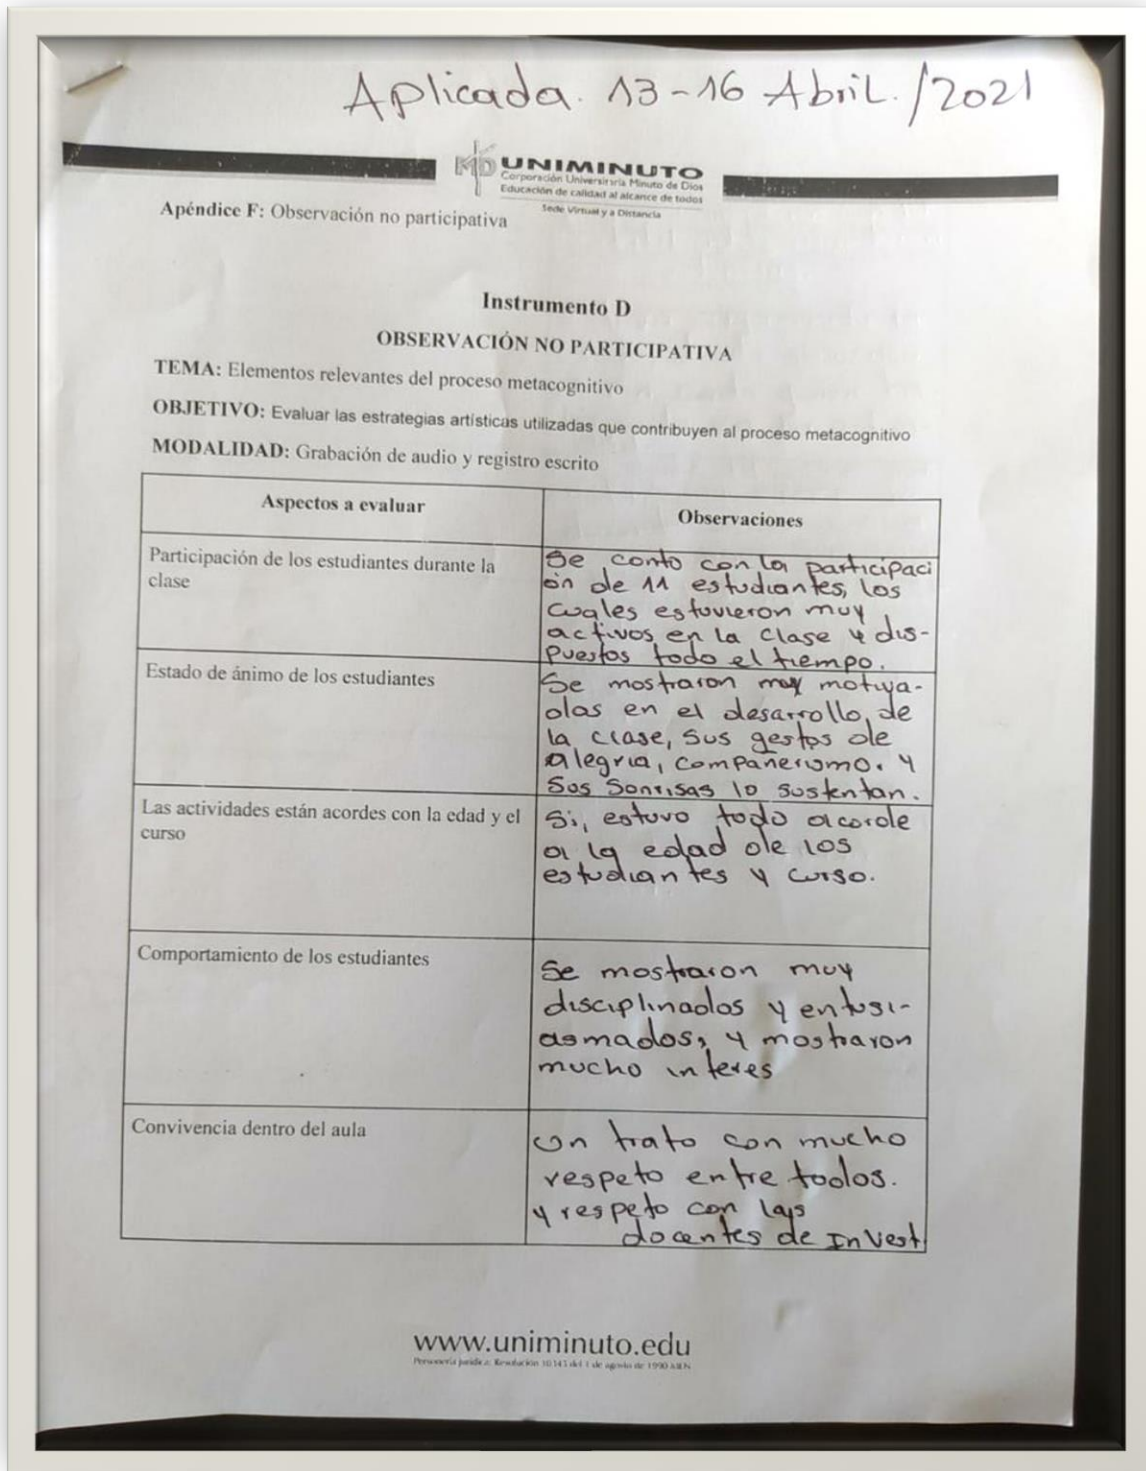 Aplicada. 13-16 Abril./2021
UNIMINUTO
Corporación Universitaria Minuto de Dios
Educación de calidad al alcance de todos
Sede Virtual y a Distancia
Apéndice F: Observación no participativa
Instrumento D
OBSERVACIÓN NO PARTICIPATIVA
TEMA: Elementos relevantes del proceso metacognitivo
OBJETIVO: Evaluar las estrategias artísticas utilizadas que contribuyen al proceso metacognitivo
MODALIDAD: Grabación de audio y registro escrito
Aspectos a evaluar
Observaciones
Participación de los estudiantes durante la
clase
Se conto con la participaci
ón de 11 estudiantes, los
cuales estuvieron muy
activos en la clase y dis-
puestos todo el tiempo.
Estado de ánimo de los estudiantes
Se mostraron muy motiva-
dos en el desarrollo, de
la clase, sus gestos de
alegria, compañerismo. y
Sos Sonrisas lo sustentan.
Las actividades están acordes con la edad y el
curso
Si, estuvo todo acorde
a la edad de los
estudiantes y curso.
Comportamiento de los estudiantes
Se mostraron muy
disciplinados y entusi-
asmados, y mostraron
mucho interes
Convivencia dentro del aula
Un trato con mucho
respeto entre todos.
y respeto con las
docentes de Invest.
www.uniminuto.edu
Personería jurídica: Resolución 10345 del 1 de agosto de 1990 MEN